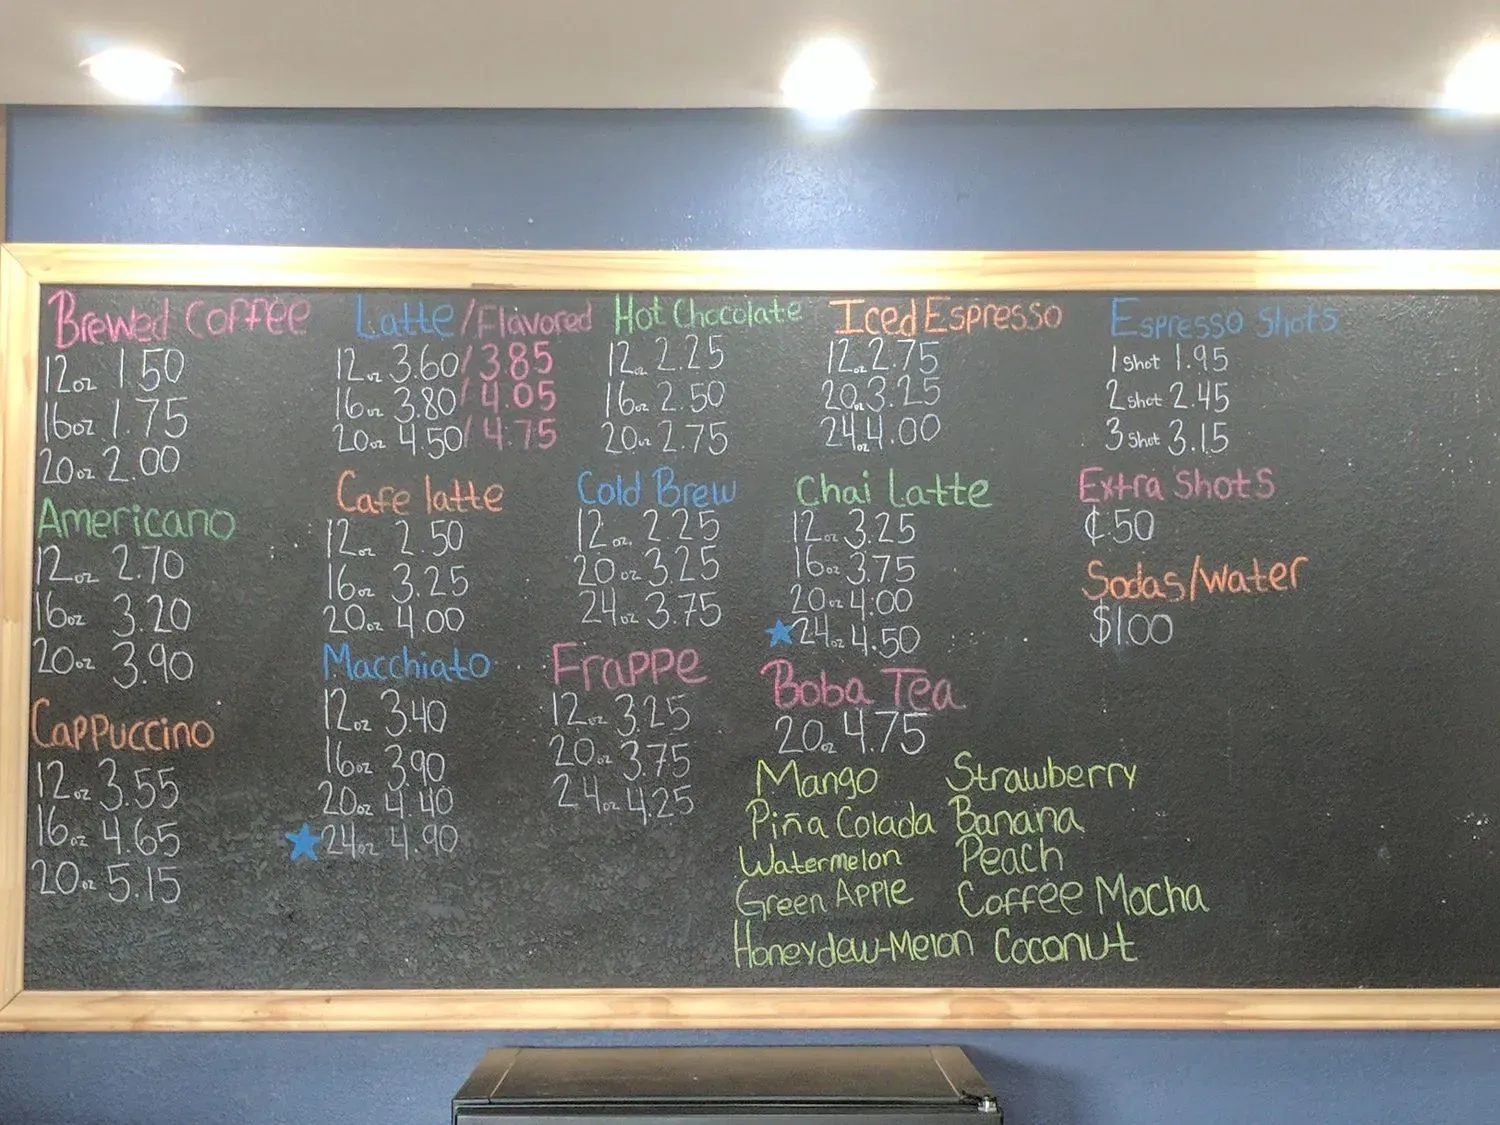 Brewed Coffee
12oz 1.50
16oz 1.75
20oz 2.00
Americano
12oz 2.70
16oz 3.20
20oz 3.90
Cappuccino
12oz 3.55
16oz 4.65
20oz 5.15
Latte/Flavored
12oz 3.60/3.85
16oz 3.80/4.05
20oz 4.50/4.75
Cafe latte
12oz 2.50
16oz 3.25
20oz 4.00
Macchiato
12oz 3.40
16oz 3.90
20oz 4.40
24oz 4.90
Hot Chocolate
12oz 2.25
16oz 2.50
20oz 2.75
Cold Brew
12oz. 2.25
20oz 3.25
24oz 3.75
Frappe
12oz 3.25
20oz 3.75
24oz 4.25
Iced Espresso
12oz 2.75
20oz 3.25
24oz 4.00
Chai Latte
12oz 3.25
16oz 3.75
20oz 4.00
24oz 4.50
Boba Tea
20oz 4.75
Mango Strawberry
Piña Colada Banana
Watermelon Peach
Green Apple Coffee Mocha
Honeydew-Melon Coconut
Espresso Shots
1 shot 1.95
2 shot 2.45
3 shot 3.15
Extra Shots
¢.50
Sodas/water
$1.00